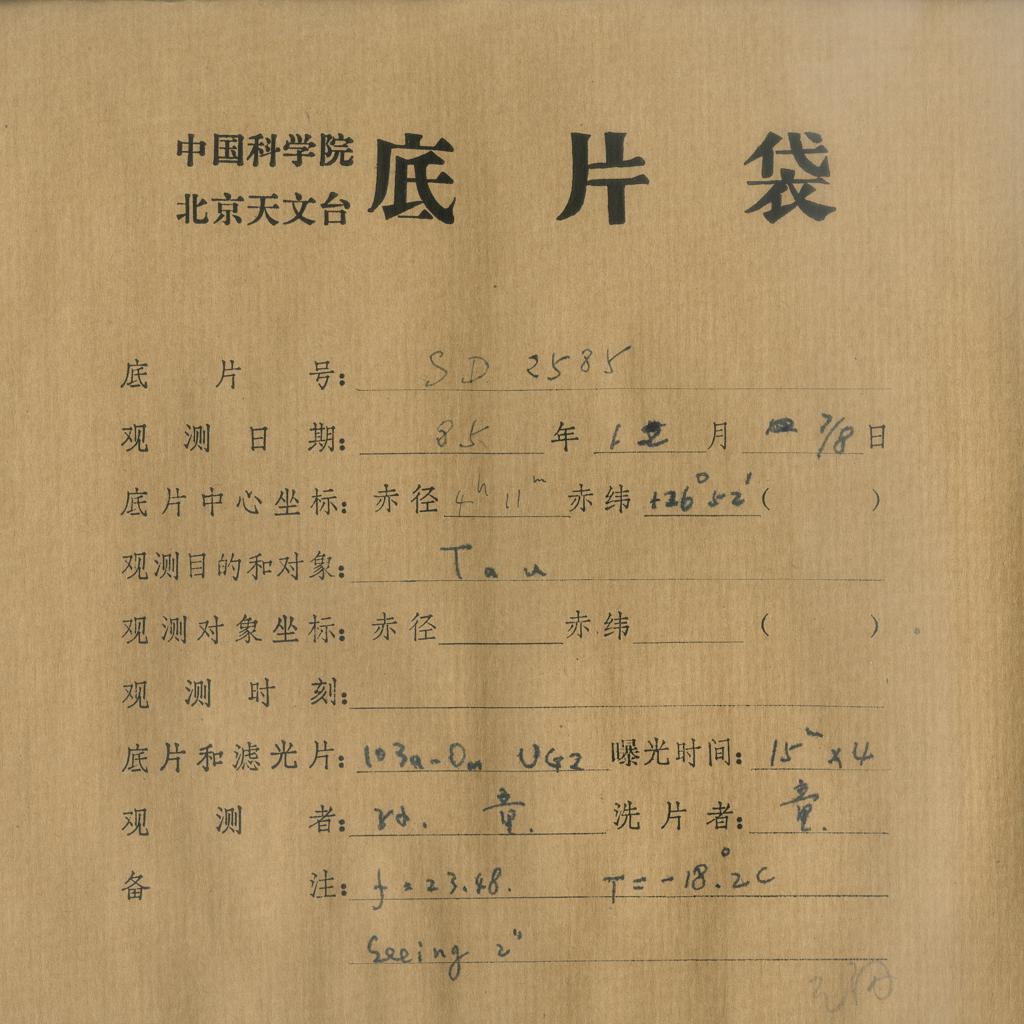 中国科学院
北京天文台
底片袋
底片号: SD 2585
观测日期: 85年12月7/8日
底片中心坐标: 赤径 4h 11m 赤纬 +26°52′( )
观测目的和对象: Tau
观测对象坐标: 赤径 赤纬 ( )
观测时刻:
底片和滤光片: 103a-O UG2 曝光时间: 15m×4
观测者: 童. 洗片者: 童.
备注: f=23.48. T=-18.°2C
Seeing 2"